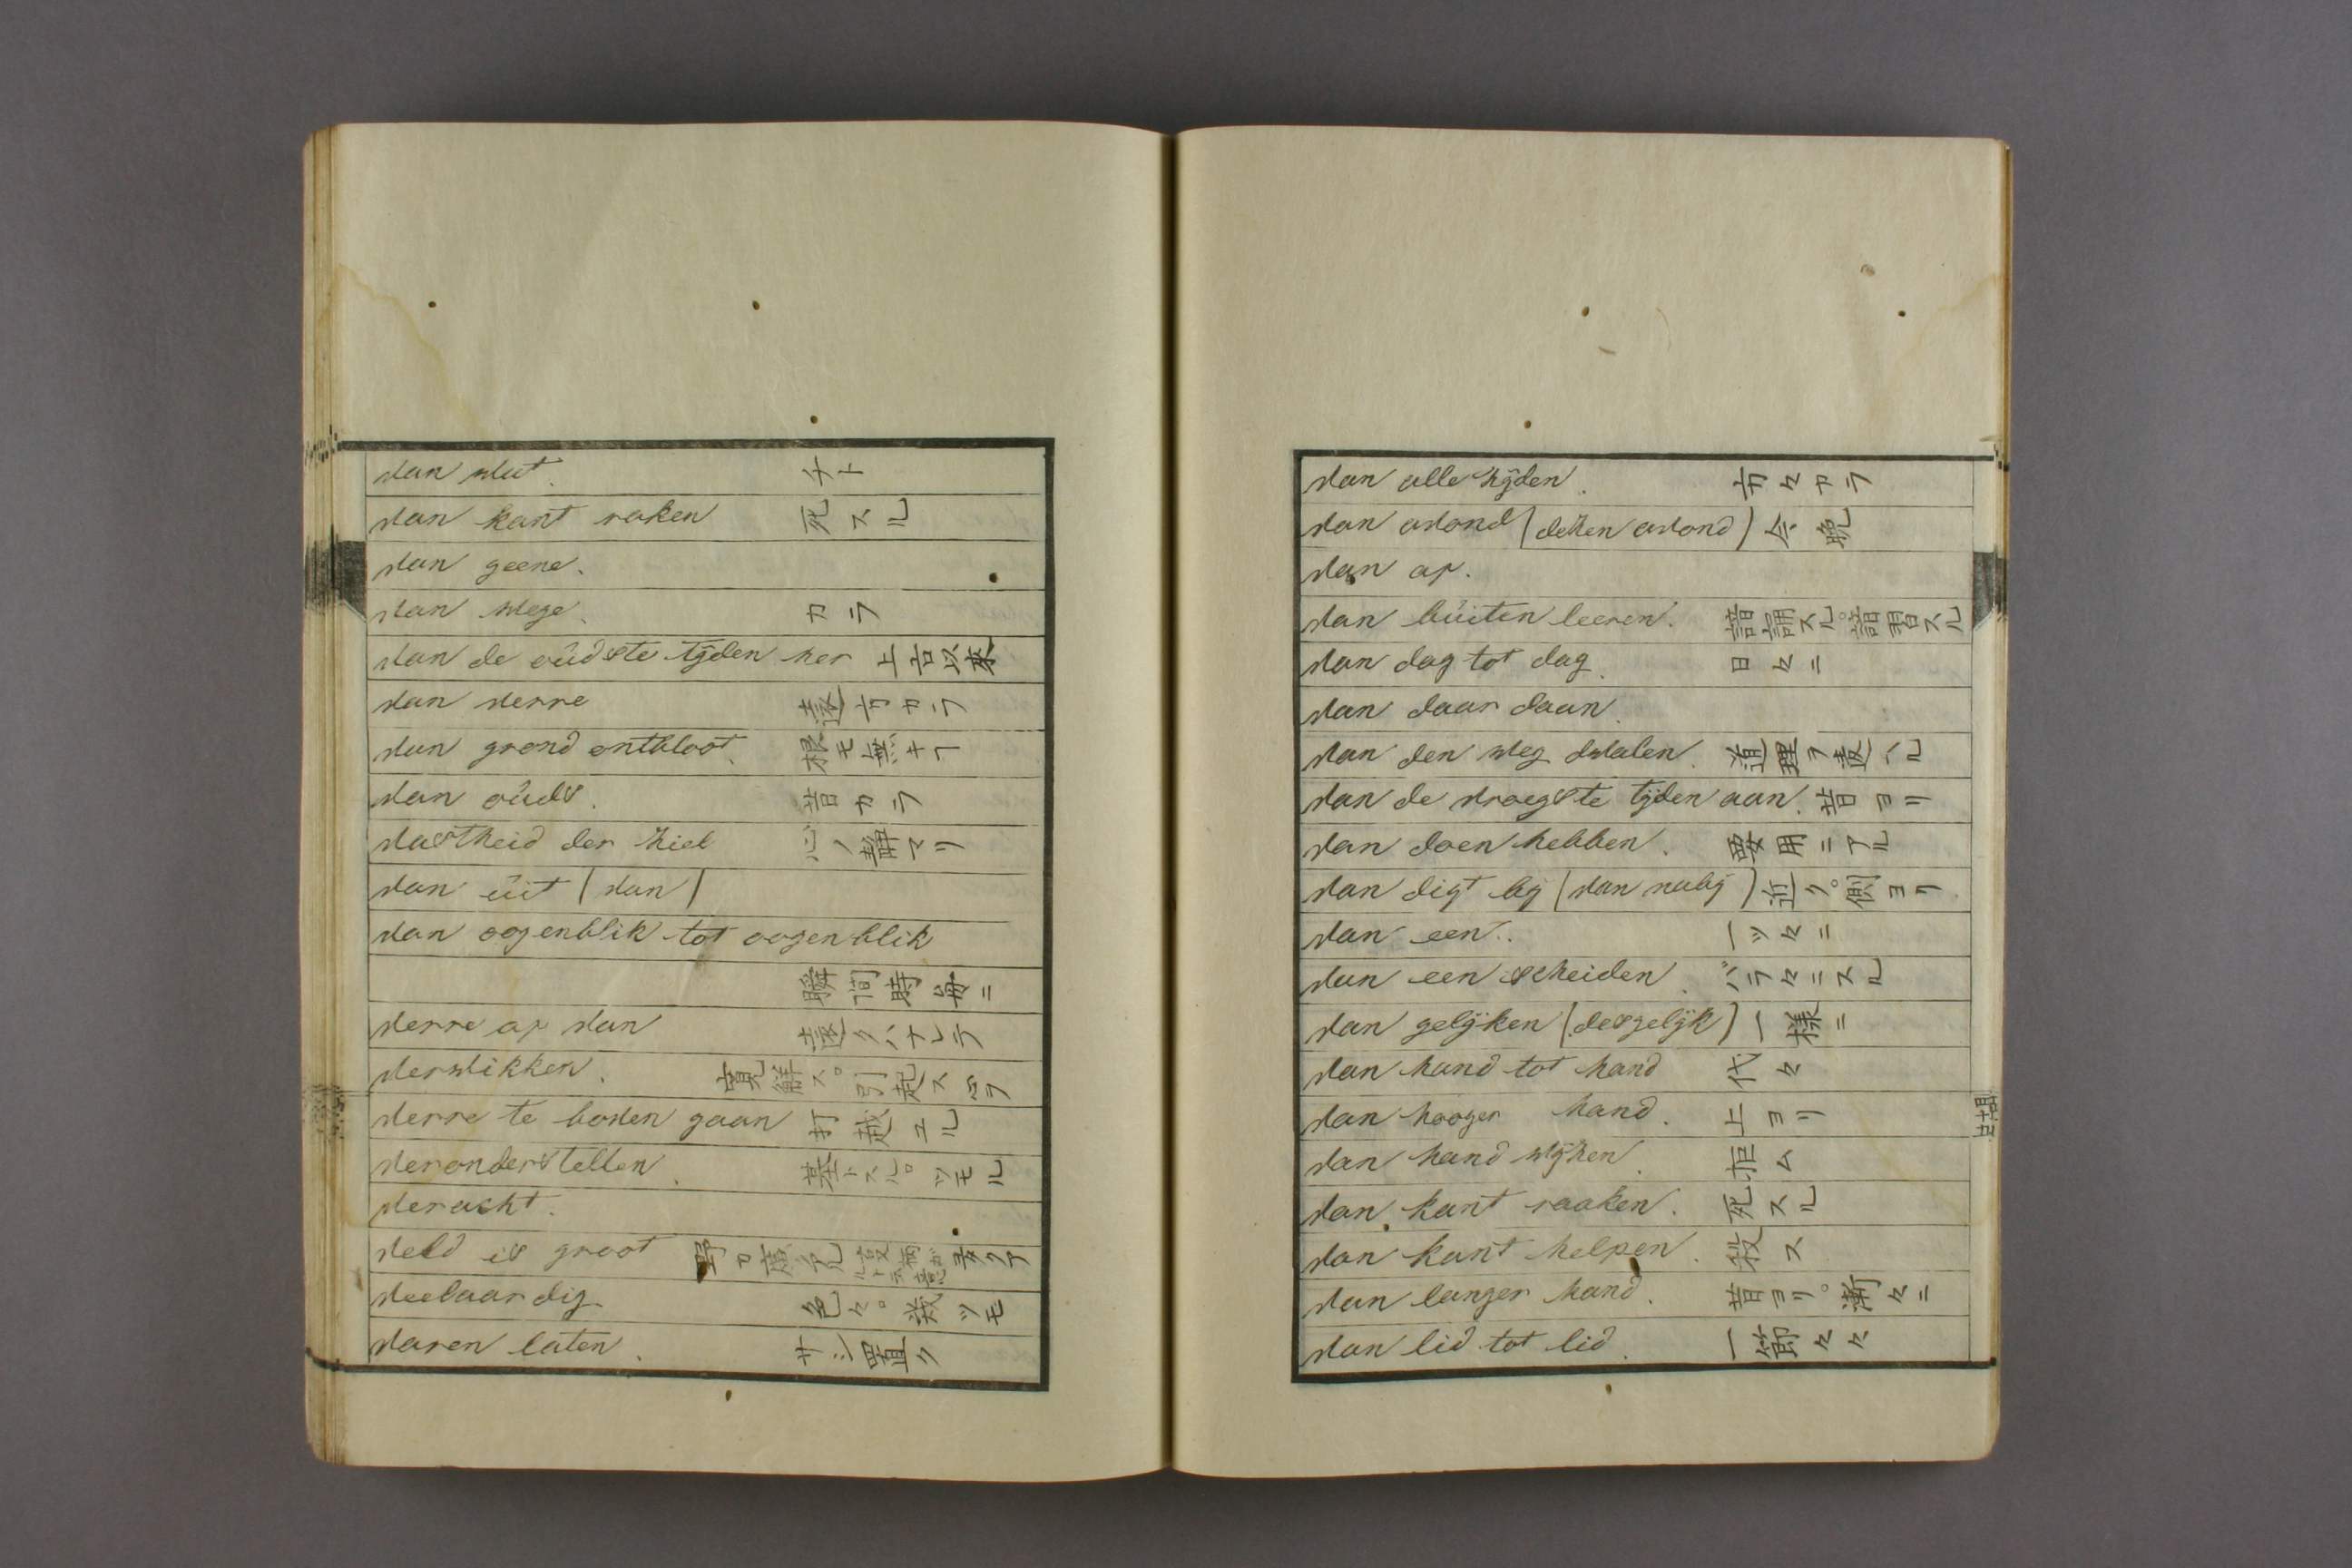 van wat. ナト
van kant raken 死スル
van geene.
van wege. カラ
van de oûdste tijden her 上古以来
van verre 遠方カラ
van grond ontbloot. 根モ無キ
van oûds. 昔カラ
vastheid der ziel 心ノ静マリ
van ûit (van)
van oogenblik tot oogenblik
瞬間時毎ニ
verre af van 遠クハナレテ
verwikken.
verre te boven gaan 打越エル
veronderstellen. 基トスル。ツモル
veracht.
veld is groot
veelaardig 色々。幾ツモ
varen laten. サシ置ク
van alle zijden. 方々カラ
van avond (dezen avond) 今晩
van af.
van bûiten leeren. 諳誦スル。諳習スル
van dag tot dag. 日々ニ
van daar daan.
van den weg dwalen. 道理ヲ違ヘル
van de vroegste tijden aan. 昔ヨリ
van doen hebben. 要用ニアル
van digt bij (van nabij) 近ク。側ヨリ
van een. 一ツ々ニ
van een scheiden. バラ々ニスル
van gelijken (desgelijk) 一様ニ
van hand tot hand 代々
van hooger hand. 上ヨリ
van hand wijzen. 拒ム
van kant raaken. 死スル
van kant helpen. 殺ス
van langer hand. 昔ヨリ。漸々ニ
van lid tot lid. 一節々々